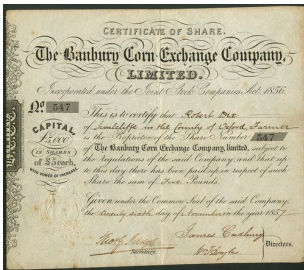 CERTIFICATE OF SHARE.
The Banbury Corn Exchange Company,
LIMITED.
Incorporated under the Joint Stock Companies Act, 1856.
No. 547
CAPITAL
£5,000
IN SHARES
of £5 each,
WITH POWER TO INCREASE.
This is to certify that Robert
of in the County of Oxford, Farmer
is the Proprietor of the Share Number 547
of The Banbury Corn Exchange Company, limited, subject to
the Regulations of the said Company, and that up
to this day there has been paid up in respect of such
Share the sum of Five Pounds.
Given under the Common Seal of the said Company,
the twenty sixth day of November the year 1857.
James
Secretary.
Directors.